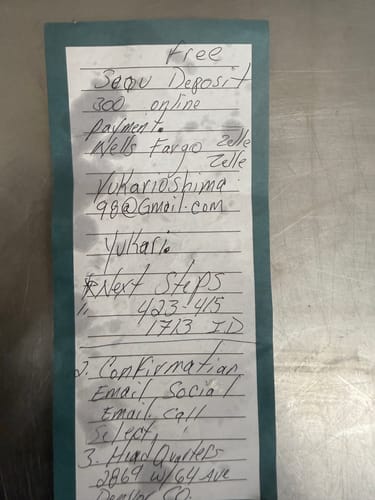 Free
Deposit
300 online
Payment.
Wells Fargo Zelle
Zelle
Yukarioshima
98@Gmail.com
Yukari.
Next Steps
" 423-415
1713 ID
2. Confirmation
Email, Social
Email, Call
Select,
3. HeadQuarters
2869 W/64 Ave
Denver CO.